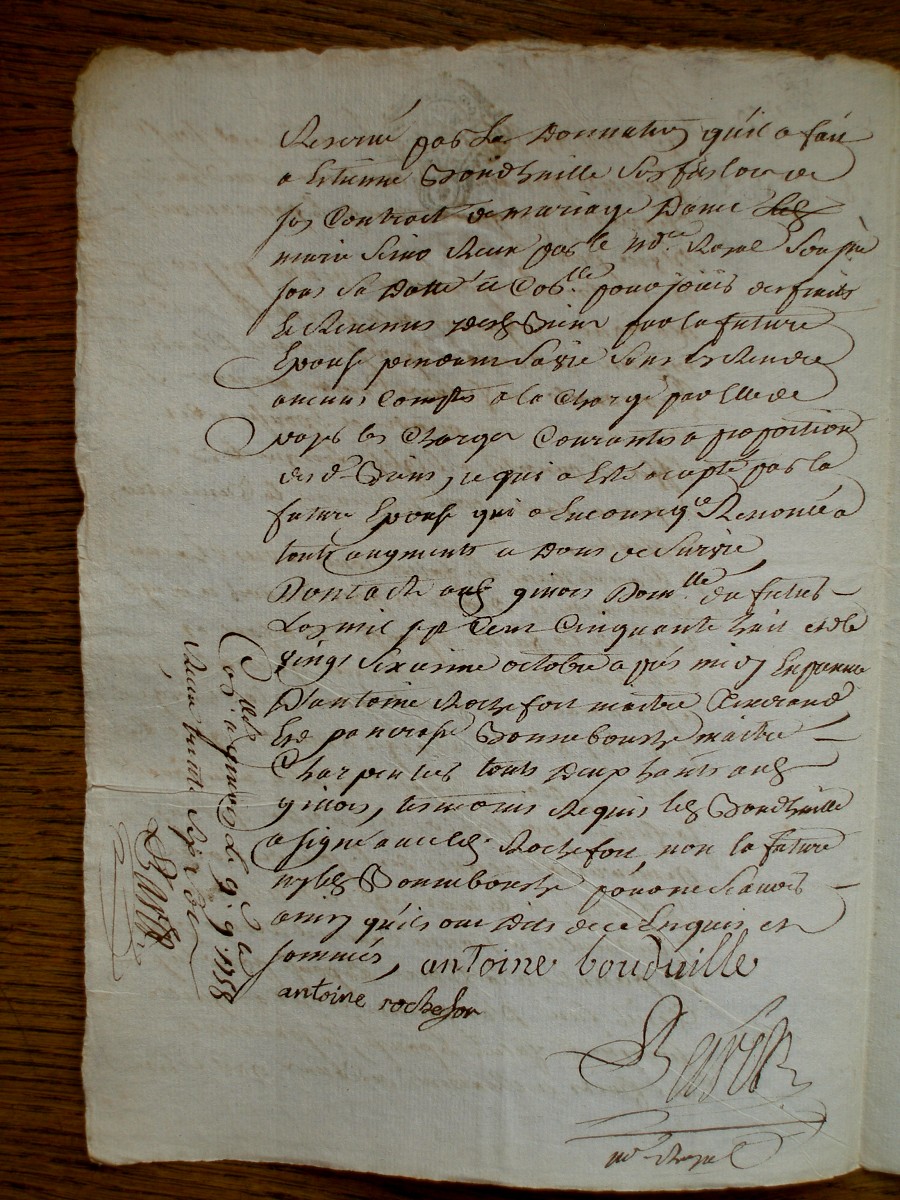 Reservé par la Donnation qu'il a fait
a Estienne Boudhuille son fils lors de
son Contract de mariage Dame
marie Recu par le nore Royal Soussigné
sous sa Datte et Coslle pour jouir des fruits
et Revenus desd Biens par la future
Epouse pendant Sa vie Sans En Rendre
aucuns Comptes a la Charge par elle de
payer les Charges Courantes a proportion
desd Biens, ce qui a Esté acepté par la
future Epouse qui a Renoncé a
touts augments et Dons de Survie
Dont acte aud ginois du futur
L'an mil sept Cent Cinquante huit et le
vingt sixieme octobre apres midy En presence
D'antoine Rochefort maitre
Et de pancrasse Bonnebouche maitre
Charpentier touts Deux habitants aud
ginois, temoins Requis led Boudhuille
a signé avec led Rochefort, non la future
ny led Bonnebouche pour ne Scavoir
ainsy qu'ils ont Dit de ce Enquis et
sommés, antoine bouduille
antoine rochefor
nore Royal
Coslle a ginois Le 9. 9. 1758
Recu trente